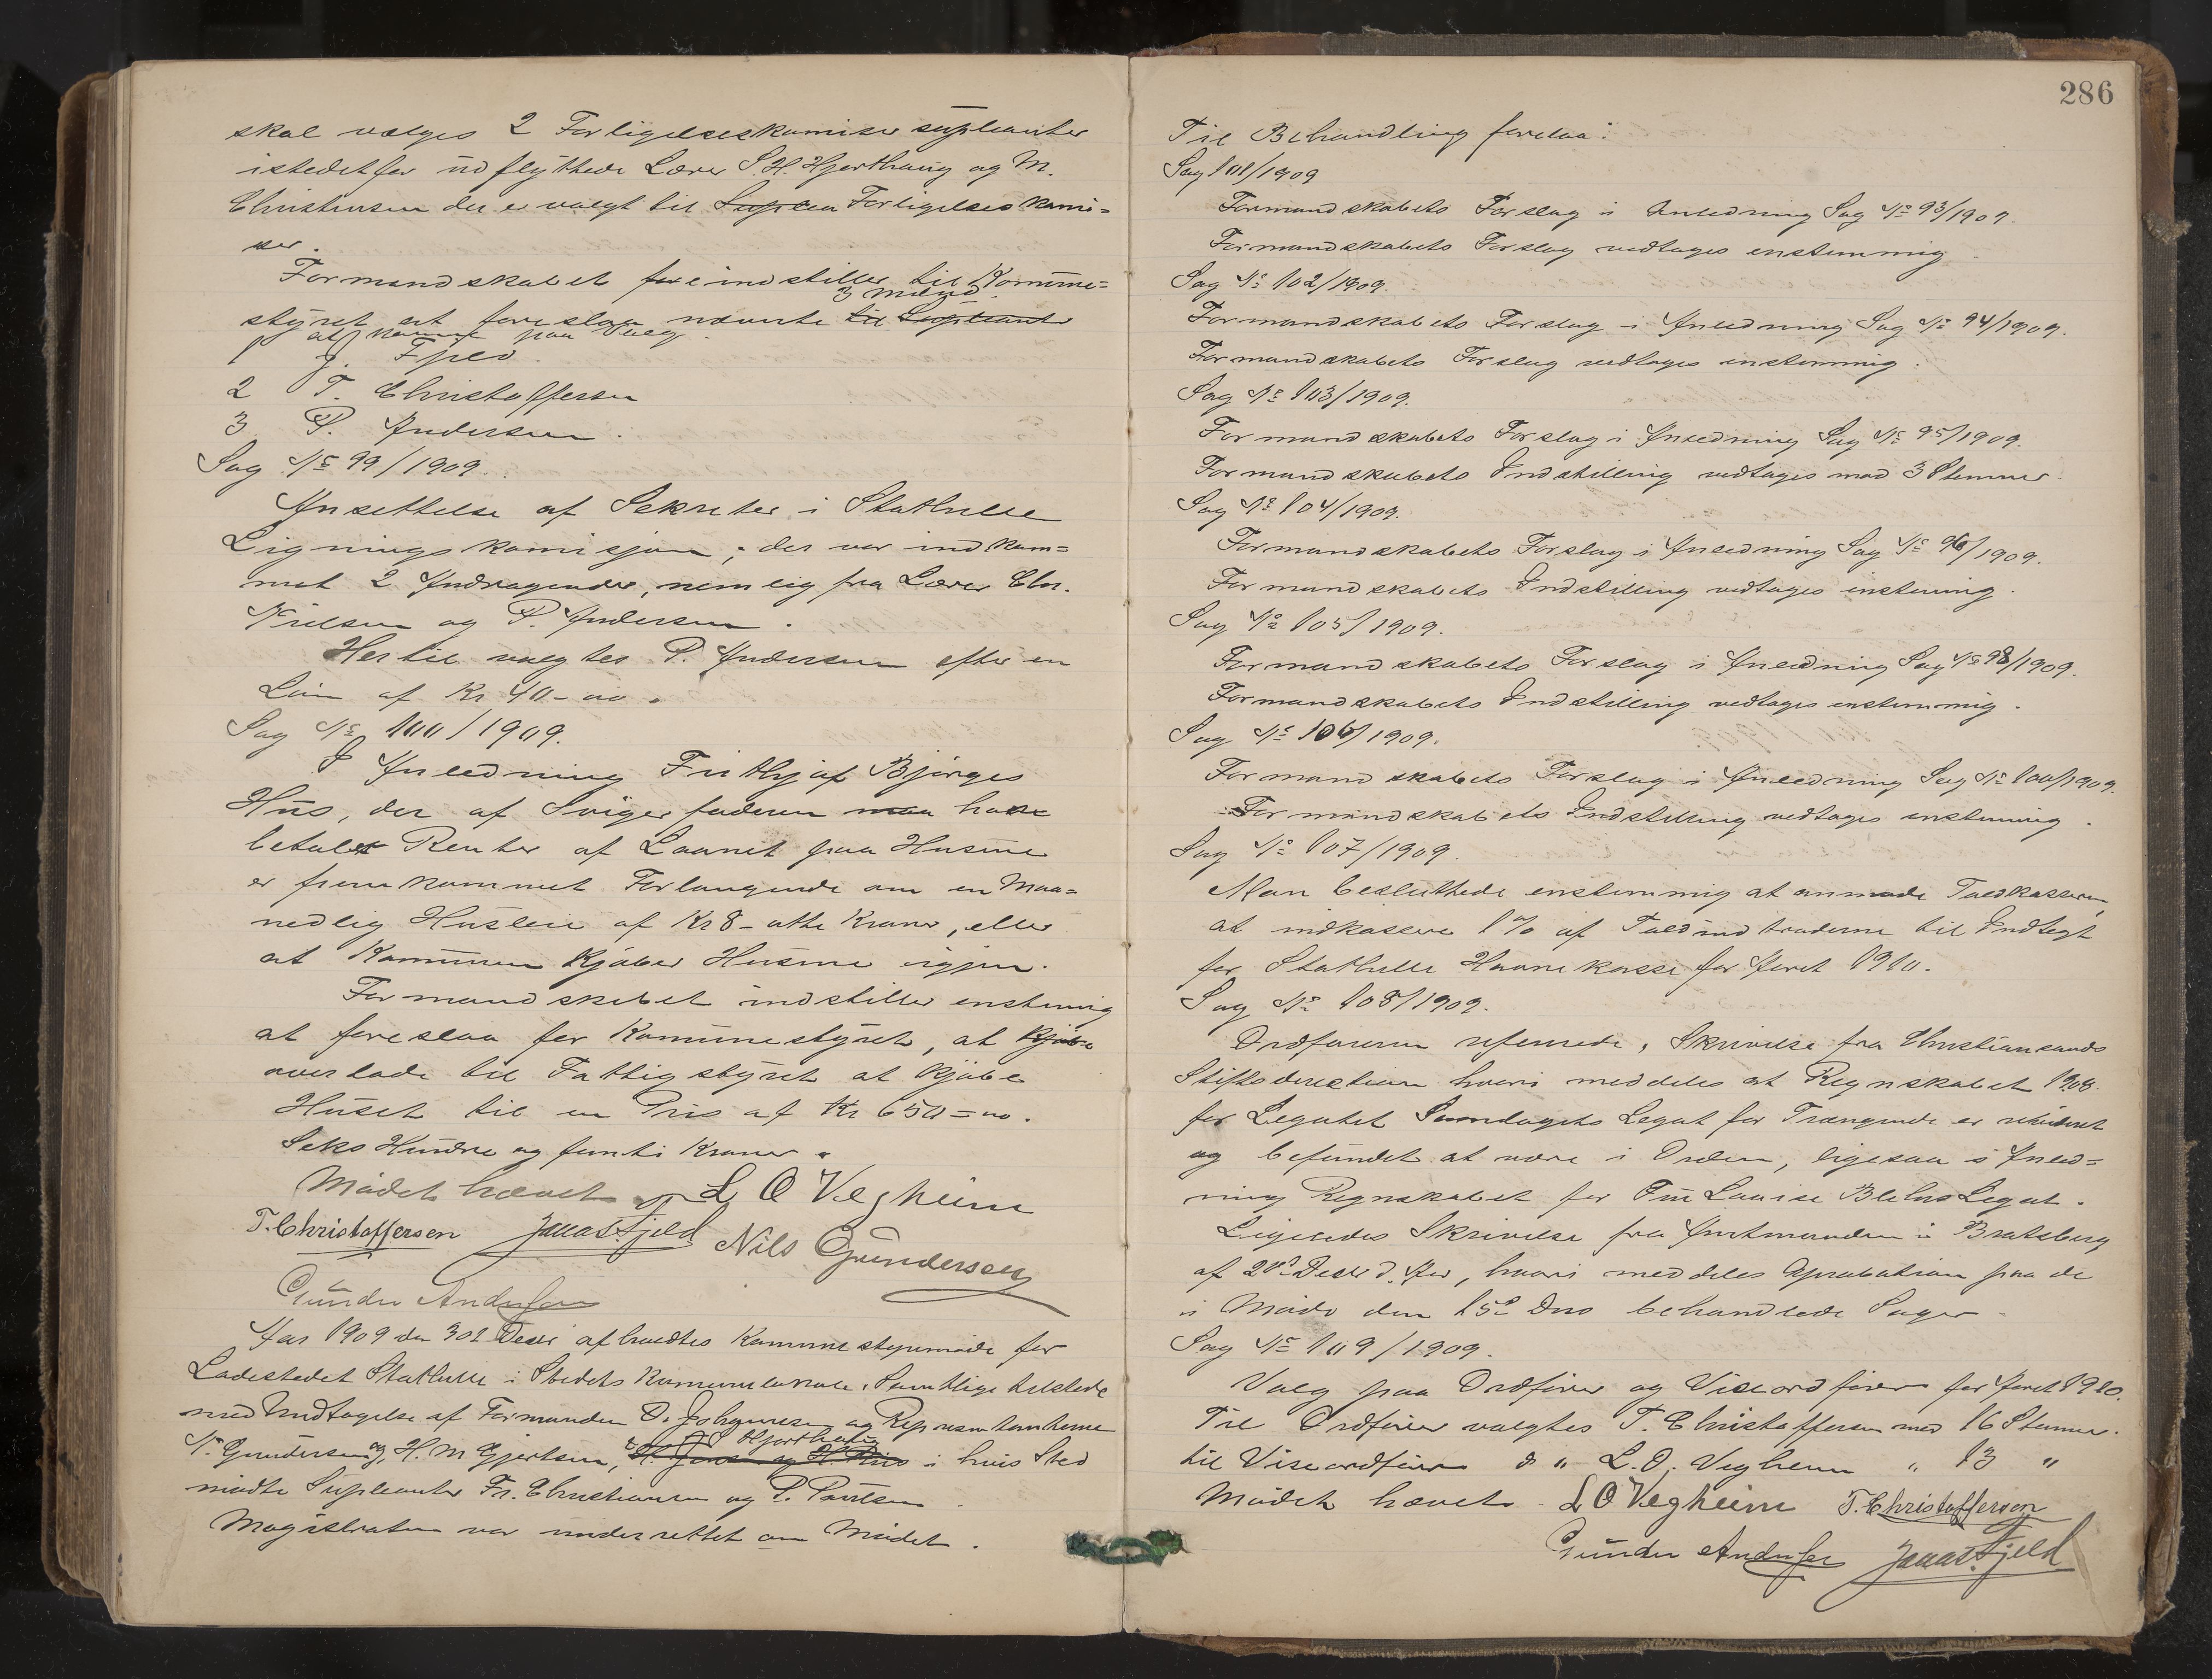 skal vælges 2 Forligelseskomiser supleanter
istedetfor udflyttede Lærer S. H. Hjorthaug og M.
Christensen der er valgt til Suplea Forligelses komi=
ser.
Formandskabet fore indstiller til Komune=
3 mænd
styret at foreslaa nævnte til Supleanter
at komme paa Valg.
1 J. Fjeld.
2 T. Christoffersen
3 P. Andersen.
Sag No 99/1909.
Ansettelse af Sekreter i Stathelle
Ligningskomisjon; der var indkom=
met 2 Andragender, nemlig fra Lærer Chr.
Nielsen og P. Andersen.
Hertil valgtes P. Andersen efter en
Løn af Kr 40-00.
Sag No 100/1909.
I Anledning Frithjof Bjørges
Hus, der af Svigerfaderen maa have
betalet Renter af Laanet paa Husene
er fremkommet Forlangende om en Maa=
nedlig Husleie af Kr 8 - otte Kroner, eller
at Komunen kjøber Husene igjen.
Formandskabet indstiller enstemig
at foreslaa for Komunestyret, at kjøbe
overlade til Fattigstyret at kjøbe
Huset til en Pris af Kr 650=00.
Seks Hundre og femti Kroner.
Mødet hævet L O Vegheim
T. Christoffersen Jonas Fjeld Nils Gundersen
Gunder Andersen
Aar 1909 den 30te Decbr afholdtes Komunestyremøde for
Ladestedet Stathelle i Stedets Komunelokale. Samtlige tilstede
med Undtagelse af Formanden O. Johannesen og Representanterne
Hjorthaug
N. Gundersen og, H. M Gjertsen, H. Jensen og H. Riis i hvis Sted
mødte Supleanter Fr. Christiansen og P. Poulsen.
Magistraten var underrettet om Mødet.
286
Til Behandling forelaa:
Sag 101/1909
Formandskabets Forslag i Anledning Sag No 93/1909.
Formandskabets Forslag vedtages enstemmig
Sag No 102/1909.
Formandskabets Forslag i Anledning Sag No 94/1909.
Formandskabets Forslag vedtages enstemmig.
Sag No 103/1909.
Formandskabets Forslag i Anledning Sag No 95/1909.
Formandskabets Indstilling vedtages mod 3 Stemmer
Sag No 104/1909.
Formandskabets Forslag i Anledning Sag No 96/1909.
Formandskabets Indstilling vedtages enstemig.
Sag No 105/1909.
Formandskabets Forslag i Anledning Sag No 98/1909.
Formandskabets Indstilling vedtages enstemmig.
Sag No 106/1909.
Formandskabets Forslag i Anledning Sag No 100/1909.
Formandskabets Indstilling vedtages enstemig.
Sag No 107/1909.
Man besluttede enstemmig at anmode Toldkasseren,
at indkassere 1% af Toldindtraderne til Indtegt
for Stathelle Havnekasse for Aaret 1910.
Sag No 108/1909.
Ordføreren refererede, Skrivelse fra Christiansands
Stiftsdirection hvori meddeles at Regnskabet 1908.
for Legatet Samlagets Legat for Trængende er revideret
og befundet at være i Orden, ligesaa i Anled=
ning Regnskabet for Fru Louise Blehrs Legat.
Ligeledes Skrivelse fra Amtmanden i Bratsberg
af 21de Decbr d. Aar, hvori meddeles Aprobation paa de
i Møde den 15de Dns behandlede Sager
Sag No 109/1909.
Valg paa Ordfører og Viseordfører for Aaret 1910.
Til Ordfører valgtes T. Christoffersen med 16 Stemmer.
til Viseordfører d " L. O. Vegheim " 13 "
Mødet hævet. L O Vegheim T. Christoffersen
Gunder Andersen Jonas Fjeld